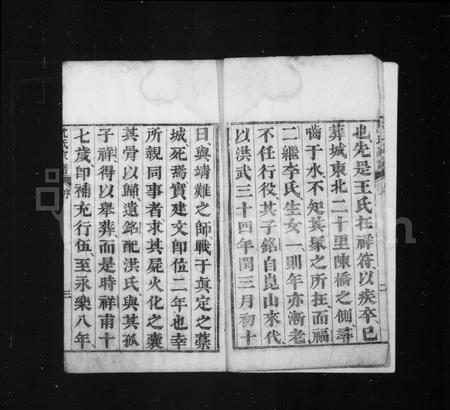 也先是王氏在祥符以疾卒已
葬城東北二十里陳橋之側尋
嚙于水不知其聚之所在而福
二繼李氏生女一則年亦漸老
不任行役其子銘自崑山來代
以洪武三十四年閏三月初十
日與靖難之師戰于真定之藁
城死焉實建文卽位二年也幸
所親同事者求其屍火化之囊
其骨以歸遺銘配洪氏與其孤
子祥得以舉葬而是時祥甫十
七歲卽補充行伍至永樂八年